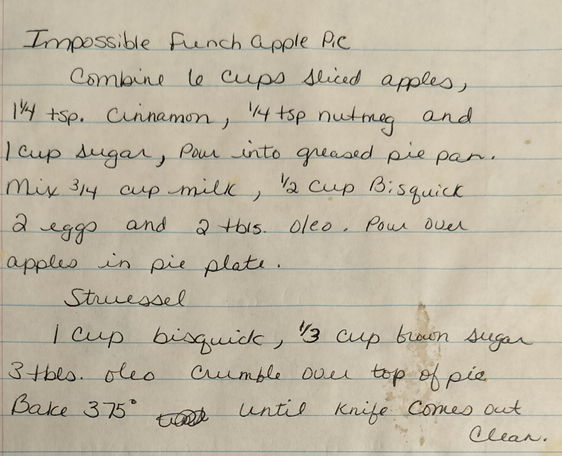 Impossible French Apple Pie
Combine 6 cups sliced apples,
1 1/4 tsp. Cinnamon, 1/4 tsp nutmeg and
1 cup sugar, Pour into greased pie pan.
Mix 3/4 cup milk, 1/2 cup Bisquick
2 eggs and 2 tbls. oleo. Pour over
apples in pie plate.
Struessel
1 Cup bisquick, 1/3 cup brown sugar
3 tbls. oleo Crumble over top of pie
Bake 375° until knife comes out
Clean.